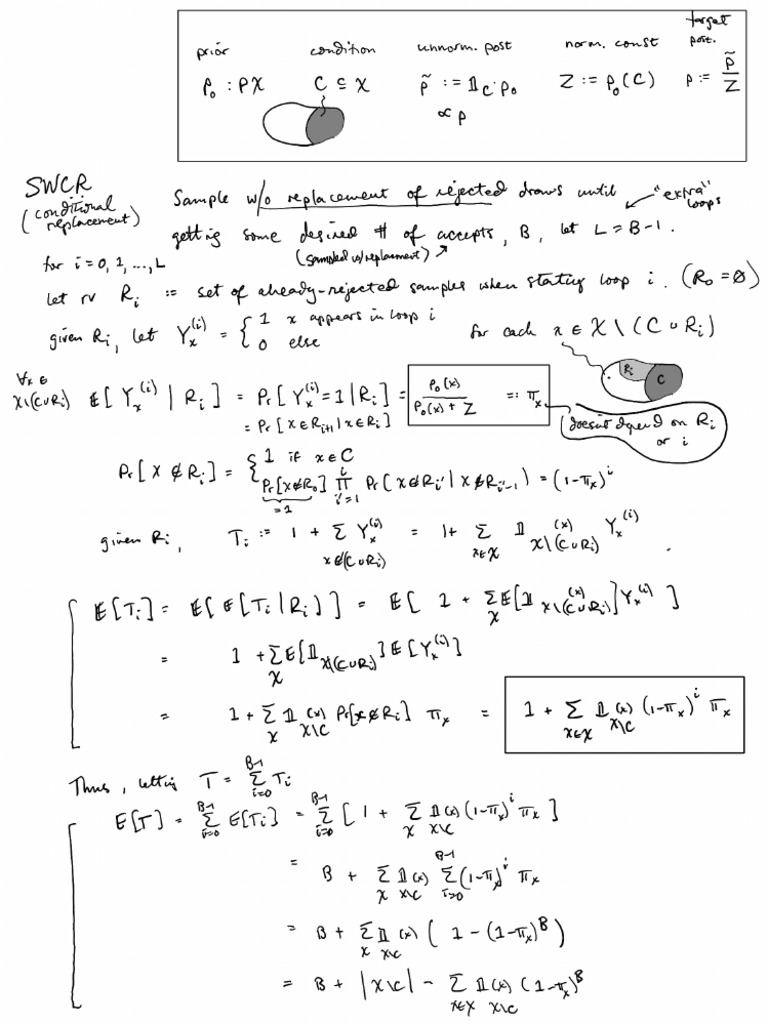 prior condition unnorm. post norm. const target post.
p₀ : PX C ⊆ X p̃ := 𝟙_C · p₀ Z := p₀(C) p := p̃/Z
∝ p
SWCR
(conditional replacement)
Sample w/o replacement of rejected draws until
"extra" loops
getting some desired # of accepts, B, let L = B-1.
(sampled w/ replacement)
for i = 0, 1, ..., L
let rv R_i := set of already-rejected samples when starting loop i. (R₀ = ∅)
given R_i, let Y_x^(i) = { 1 x appears in loop i
0 else
for each x ∈ X \ (C ∪ R_i)
R_i C
∀x ∈ X\(C∪R_i) E[Y_x^(i) | R_i] = Pr[Y_x^(i) = 1 | R_i] = p₀(x)/(p₀(x) + Z) =: π_x
= Pr[x ∈ R_{i+1} | x ∉ R_i]
doesn't depend on R_i or i
Pr[x ∉ R_i] = { 1 if x ∈ C
Pr[x ∉ R₀] ∏_{i'=1}^{i} Pr(x ∉ R_{i'} | x ∉ R_{i'-1}) = (1-π_x)^i
= 1
given R_i, T_i := 1 + Σ_{x∉(C∪R_i)} Y_x^(i) = 1 + Σ_{x∈X} 𝟙_{X\(C∪R_i)}(x) Y_x^(i) .
E[T_i] = E[E[T_i | R_i]] = E[1 + Σ_X E[𝟙_{X\(C∪R_i)}(x)] Y_x^(i)]
= 1 + Σ_X E[𝟙_{X\(C∪R_i)}] E[Y_x^(i)]
= 1 + Σ_X 𝟙_{X\C}(x) Pr[x ∉ R_i] π_x = 1 + Σ_{x∈X} 𝟙_{X\C}(x) (1-π_x)^i π_x
Thus, letting T = Σ_{i=0}^{B-1} T_i
E[T] = Σ_{i=0}^{B-1} E[T_i] = Σ_{i=0}^{B-1} [1 + Σ_X 𝟙_{X\C}(x) (1-π_x)^i π_x]
= B + Σ_X 𝟙_{X\C}(x) Σ_{i=0}^{B-1} (1-π_x)^i π_x
= B + Σ_X 𝟙_{X\C}(x) (1 - (1-π_x)^B)
= B + |X\C| - Σ_{x∈X} 𝟙_{X\C}(x) (1-π_x)^B